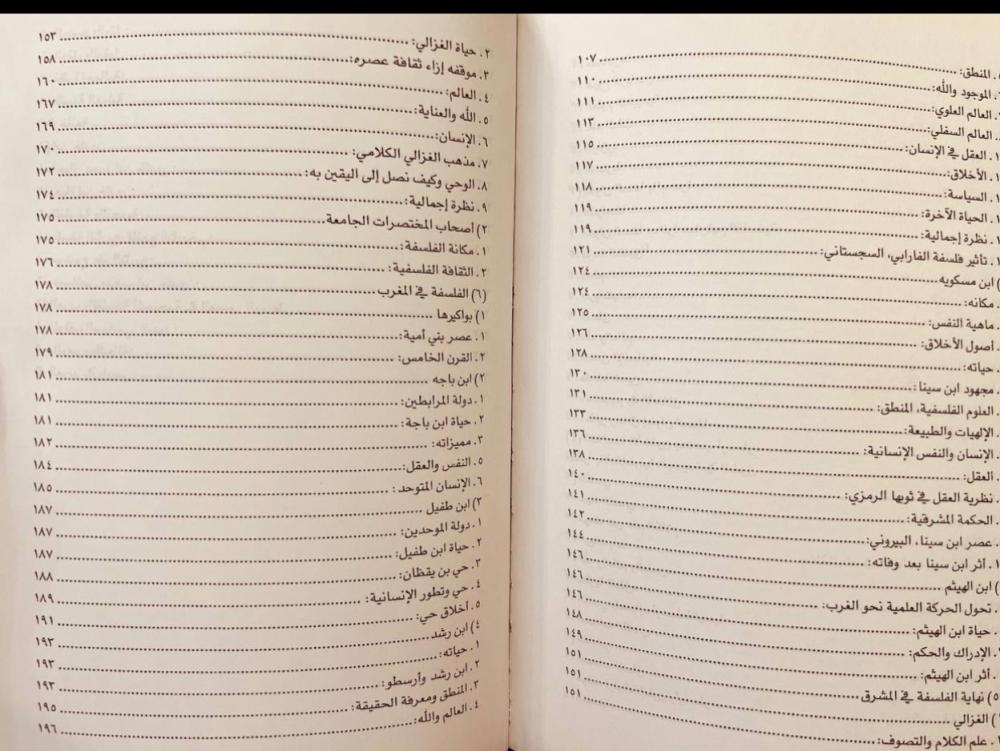 المنطق: ١٠٧
الموجود والله: ١١٠
العالم العلوي: ١١١
العالم السفلي: ١١٣
العقل في الإنسان: ١١٥
الأخلاق: ١١٧
السياسة: ١١٨
الحياة الآخرة: ١١٩
نظرة إجمالية: ١١٩
تأثير فلسفة الفارابي، السجستاني: ١٢١
) ابن مسكويه ١٢٤
. مكانه: ١٢٤
. ماهية النفس: ١٢٥
. أصول الأخلاق: ١٢٦
. حياته: ١٢٨
. مجهود ابن سينا: ١٣٠
. العلوم الفلسفية، المنطق: ١٣١
. الإلهيات والطبيعة: ١٣٣
. الإنسان والنفس الإنسانية: ١٣٦
. العقل: ١٣٨
. نظرية العقل في ثوبها الرمزي: ١٤٠
. الحكمة المشرقية: ١٤١
. عصر ابن سينا، البيروني: ١٤٢
. أثر ابن سينا بعد وفاته: ١٤٤
) ابن الهيثم ١٤٦
. تحول الحركة العلمية نحو الغرب: ١٤٦
. حياة ابن الهيثم: ١٤٦
. الإدراك والحكم: ١٤٨
. أثر ابن الهيثم: ١٤٩
٥) نهاية الفلسفة في المشرق ١٥١
) الغزالي ١٥١
. علم الكلام والتصوف:
٢. حياة الغزالي: ١٥٣
٣. موقفه إزاء ثقافة عصره: ١٥٨
٤. العالم: ١٦٠
٥. الله والعناية: ١٦٧
٦. الإنسان: ١٦٩
٧. مذهب الغزالي الكلامي: ١٧٠
٨. الوحي وكيف نصل إلى اليقين به: ١٧٢
٩. نظرة إجمالية: ١٧٤
٢) أصحاب المختصرات الجامعة ١٧٥
١. مكانة الفلسفة: ١٧٥
٢. الثقافة الفلسفية: ١٧٦
(٦) الفلسفة في المغرب ١٧٨
١) بواكيرها ١٧٨
١. عصر بني أمية: ١٧٨
٢. القرن الخامس: ١٧٩
٢) ابن باجه ١٨١
١. دولة المرابطين: ١٨١
٢. حياة ابن باجة: ١٨١
٣. مميزاته: ١٨٢
٥. النفس والعقل: ١٨٤
٦. الإنسان المتوحد: ١٨٥
٣) ابن طفيل ١٨٧
١. دولة الموحدين: ١٨٧
٢. حياة ابن طفيل: ١٨٧
٣. حي بن يقظان: ١٨٨
٤. حي وتطور الإنسانية: ١٨٩
٥. أخلاق حي: ١٩١
٤) ابن رشد ١٩٣
١. حياته: ١٩٣
٢. ابن رشد وأرسطو: ١٩٣
٣. المنطق ومعرفة الحقيقة: ١٩٥
٤. العالم والله: ١٩٦